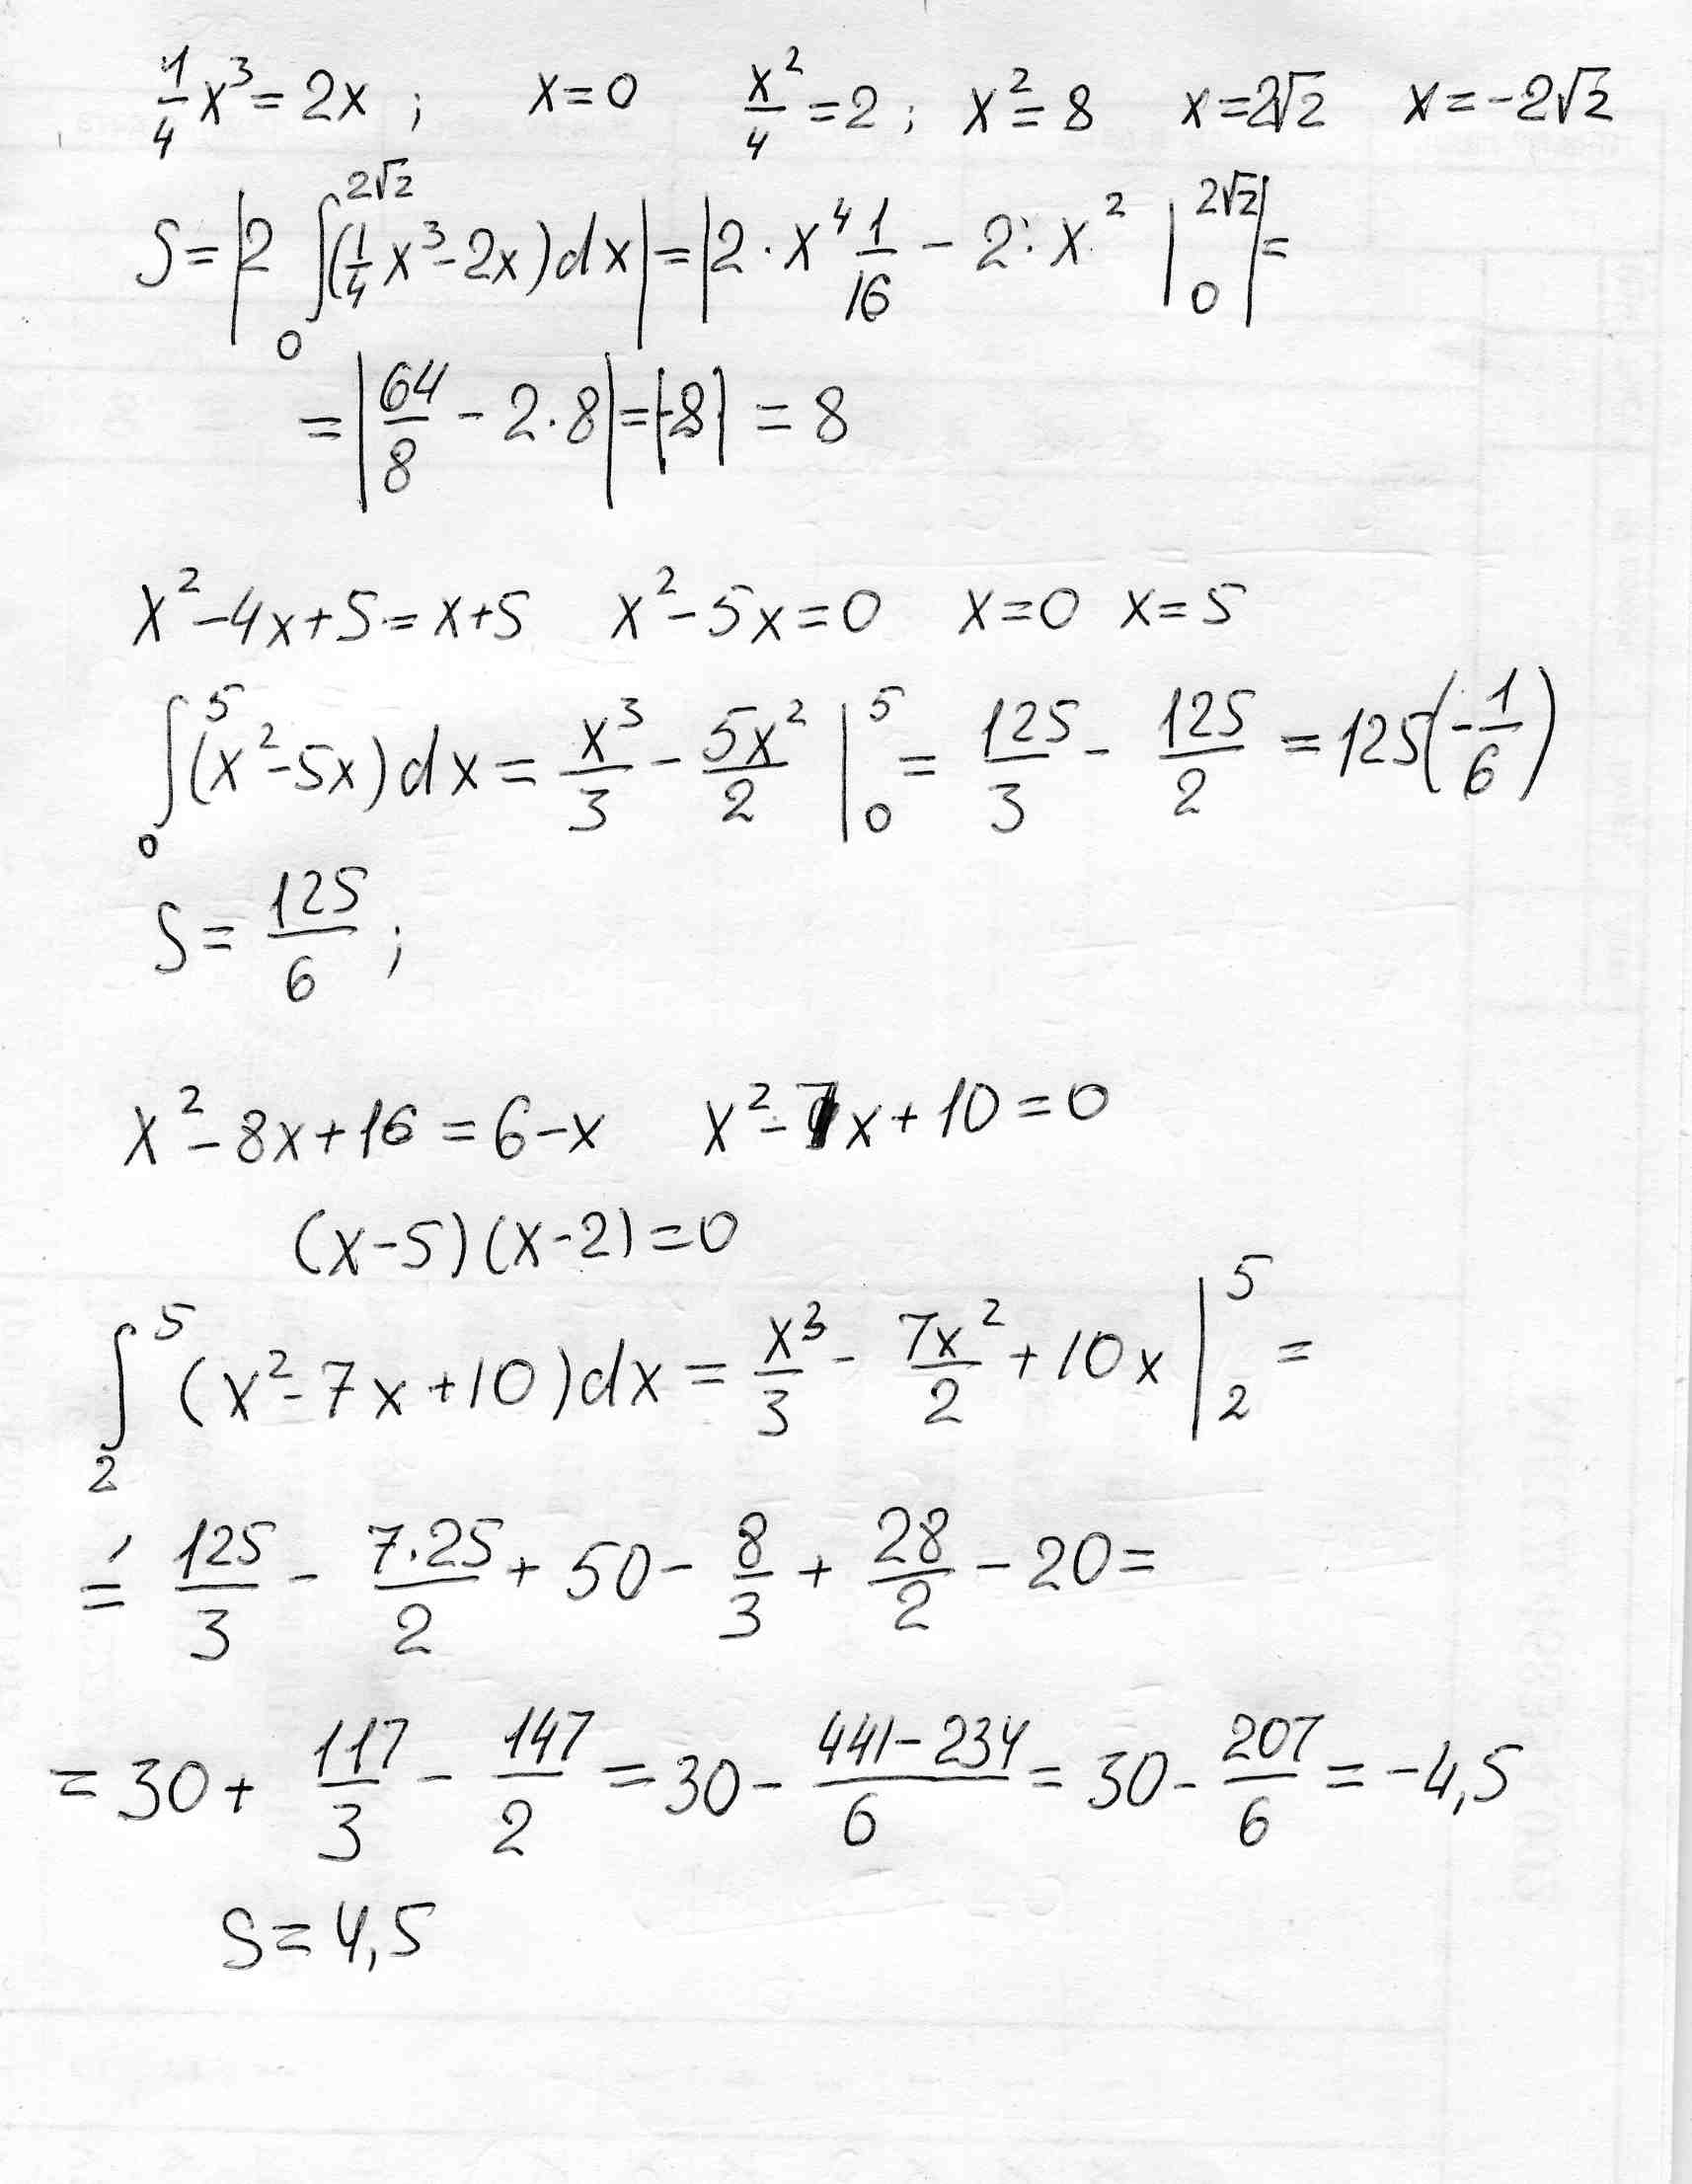 1/4 x³ = 2x ; x=0 x²/4 = 2 ; x² = 8 x=2√2 x=-2√2
S = |2 ∫₀^{2√2} (1/4 x³ - 2x) dx| = |2 · x⁴ 1/16 - 2· x² |₀^{2√2}| =
= |64/8 - 2·8| = |-8| = 8
x² - 4x + 5 = x + 5 x² - 5x = 0 x=0 x=5
∫₀⁵ (x² - 5x) dx = x³/3 - 5x²/2 |₀⁵ = 125/3 - 125/2 = 125(-1/6)
S = 125/6 ;
x² - 8x + 16 = 6 - x x² - 7x + 10 = 0
(x-5)(x-2) = 0
∫₂⁵ (x² - 7x + 10) dx = x³/3 - 7x²/2 + 10x |₂⁵ =
= 125/3 - 7·25/2 + 50 - 8/3 + 28/2 - 20 =
= 30 + 117/3 - 147/2 = 30 - 441-234/6 = 30 - 207/6 = -4,5
S = 4,5